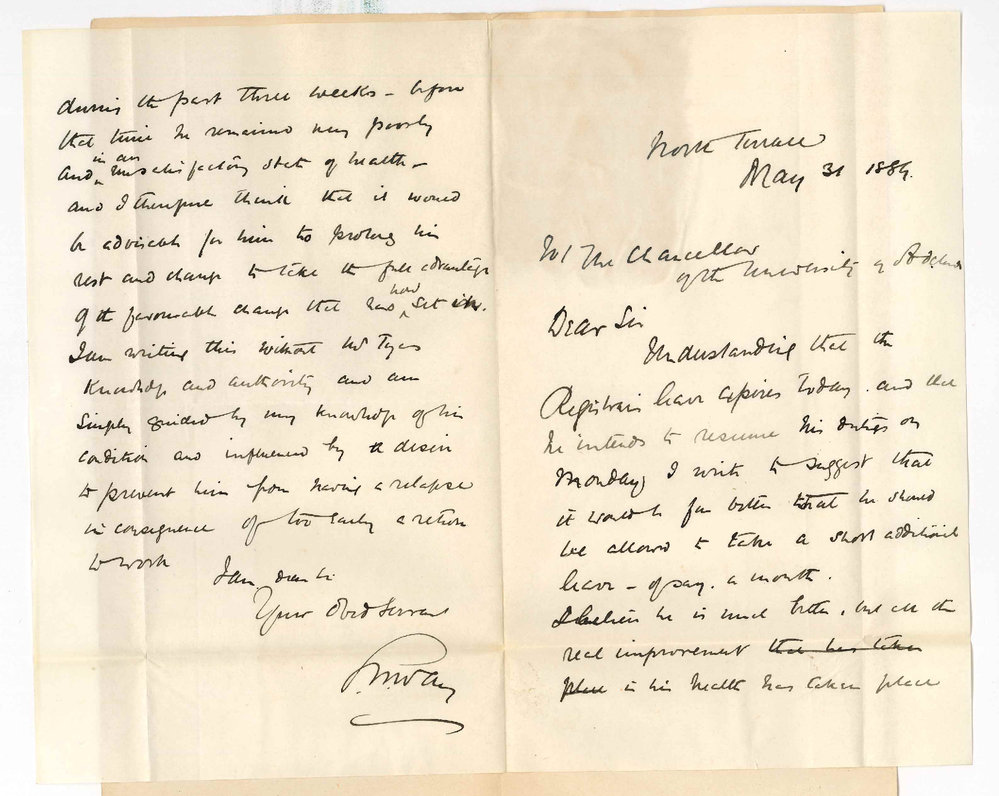 North Terrace
May 31 1884.
The Chancellor
of the University of Adelaide
Dear Sir
Understanding that the
Registrars leave expires today. and that
he intends to resume his duties on
Monday, I write to suggest that
it would be far better that he should
be allowed to take a short additional
leave – of say. a month.
I believe he is much better, but all the
real improvement that has taken
place in his health has taken place
during the past three weeks – before
that time he remained very poorly
and in an unsatisfactory state of health –
and I therefore think that it would
be advisable for him to prolong his
rest and change to take the full advantage
of the favourable change that has now set in.
I am writing this without Mr Tyas
Knowledge and authority and am
simply guided by my knowledge of his
condition and influenced by a desire
to prevent him from having a relapse
in consequence of too early a return
to work
I am dear Sir
Your Obed Servant